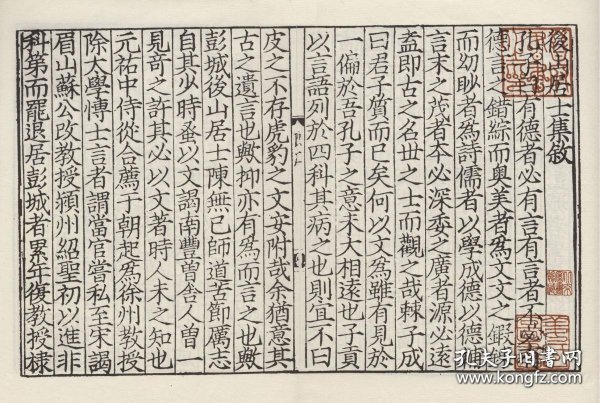 後山居士集敘
孔子曰有德者必有言有言者不必有
德言之錯綜而奧美者為文文之鍜鍊
而幼眇者為詩儒者以學成德以德
言末之茂者本必深委之廣者源必遠
盍即古之名世之士而觀之哉棘子成
曰君子質而已矣何以文為雖有見於
一偏於吾孔子之意未大相遠也子貢
以言語列於四科其病之也則宜不曰
皮之不存虎豹之文安附哉余猶意其
古之遺言也歟抑亦有為而言之也歟
彭城後山居士陳無己師道苦節厲志
自其少時蚤以文謁南豐曾舍人曾一
見奇之許其必以文著時人未之知也
元祐中侍從合薦于朝起為徐州教授
除太學博士言者謂當官嘗私至宋謁
眉山蘇公改教授潁州紹聖初以進非
科第而罷退居彭城者累年復教授棣
孔夫子旧书网
www.kongfz.com